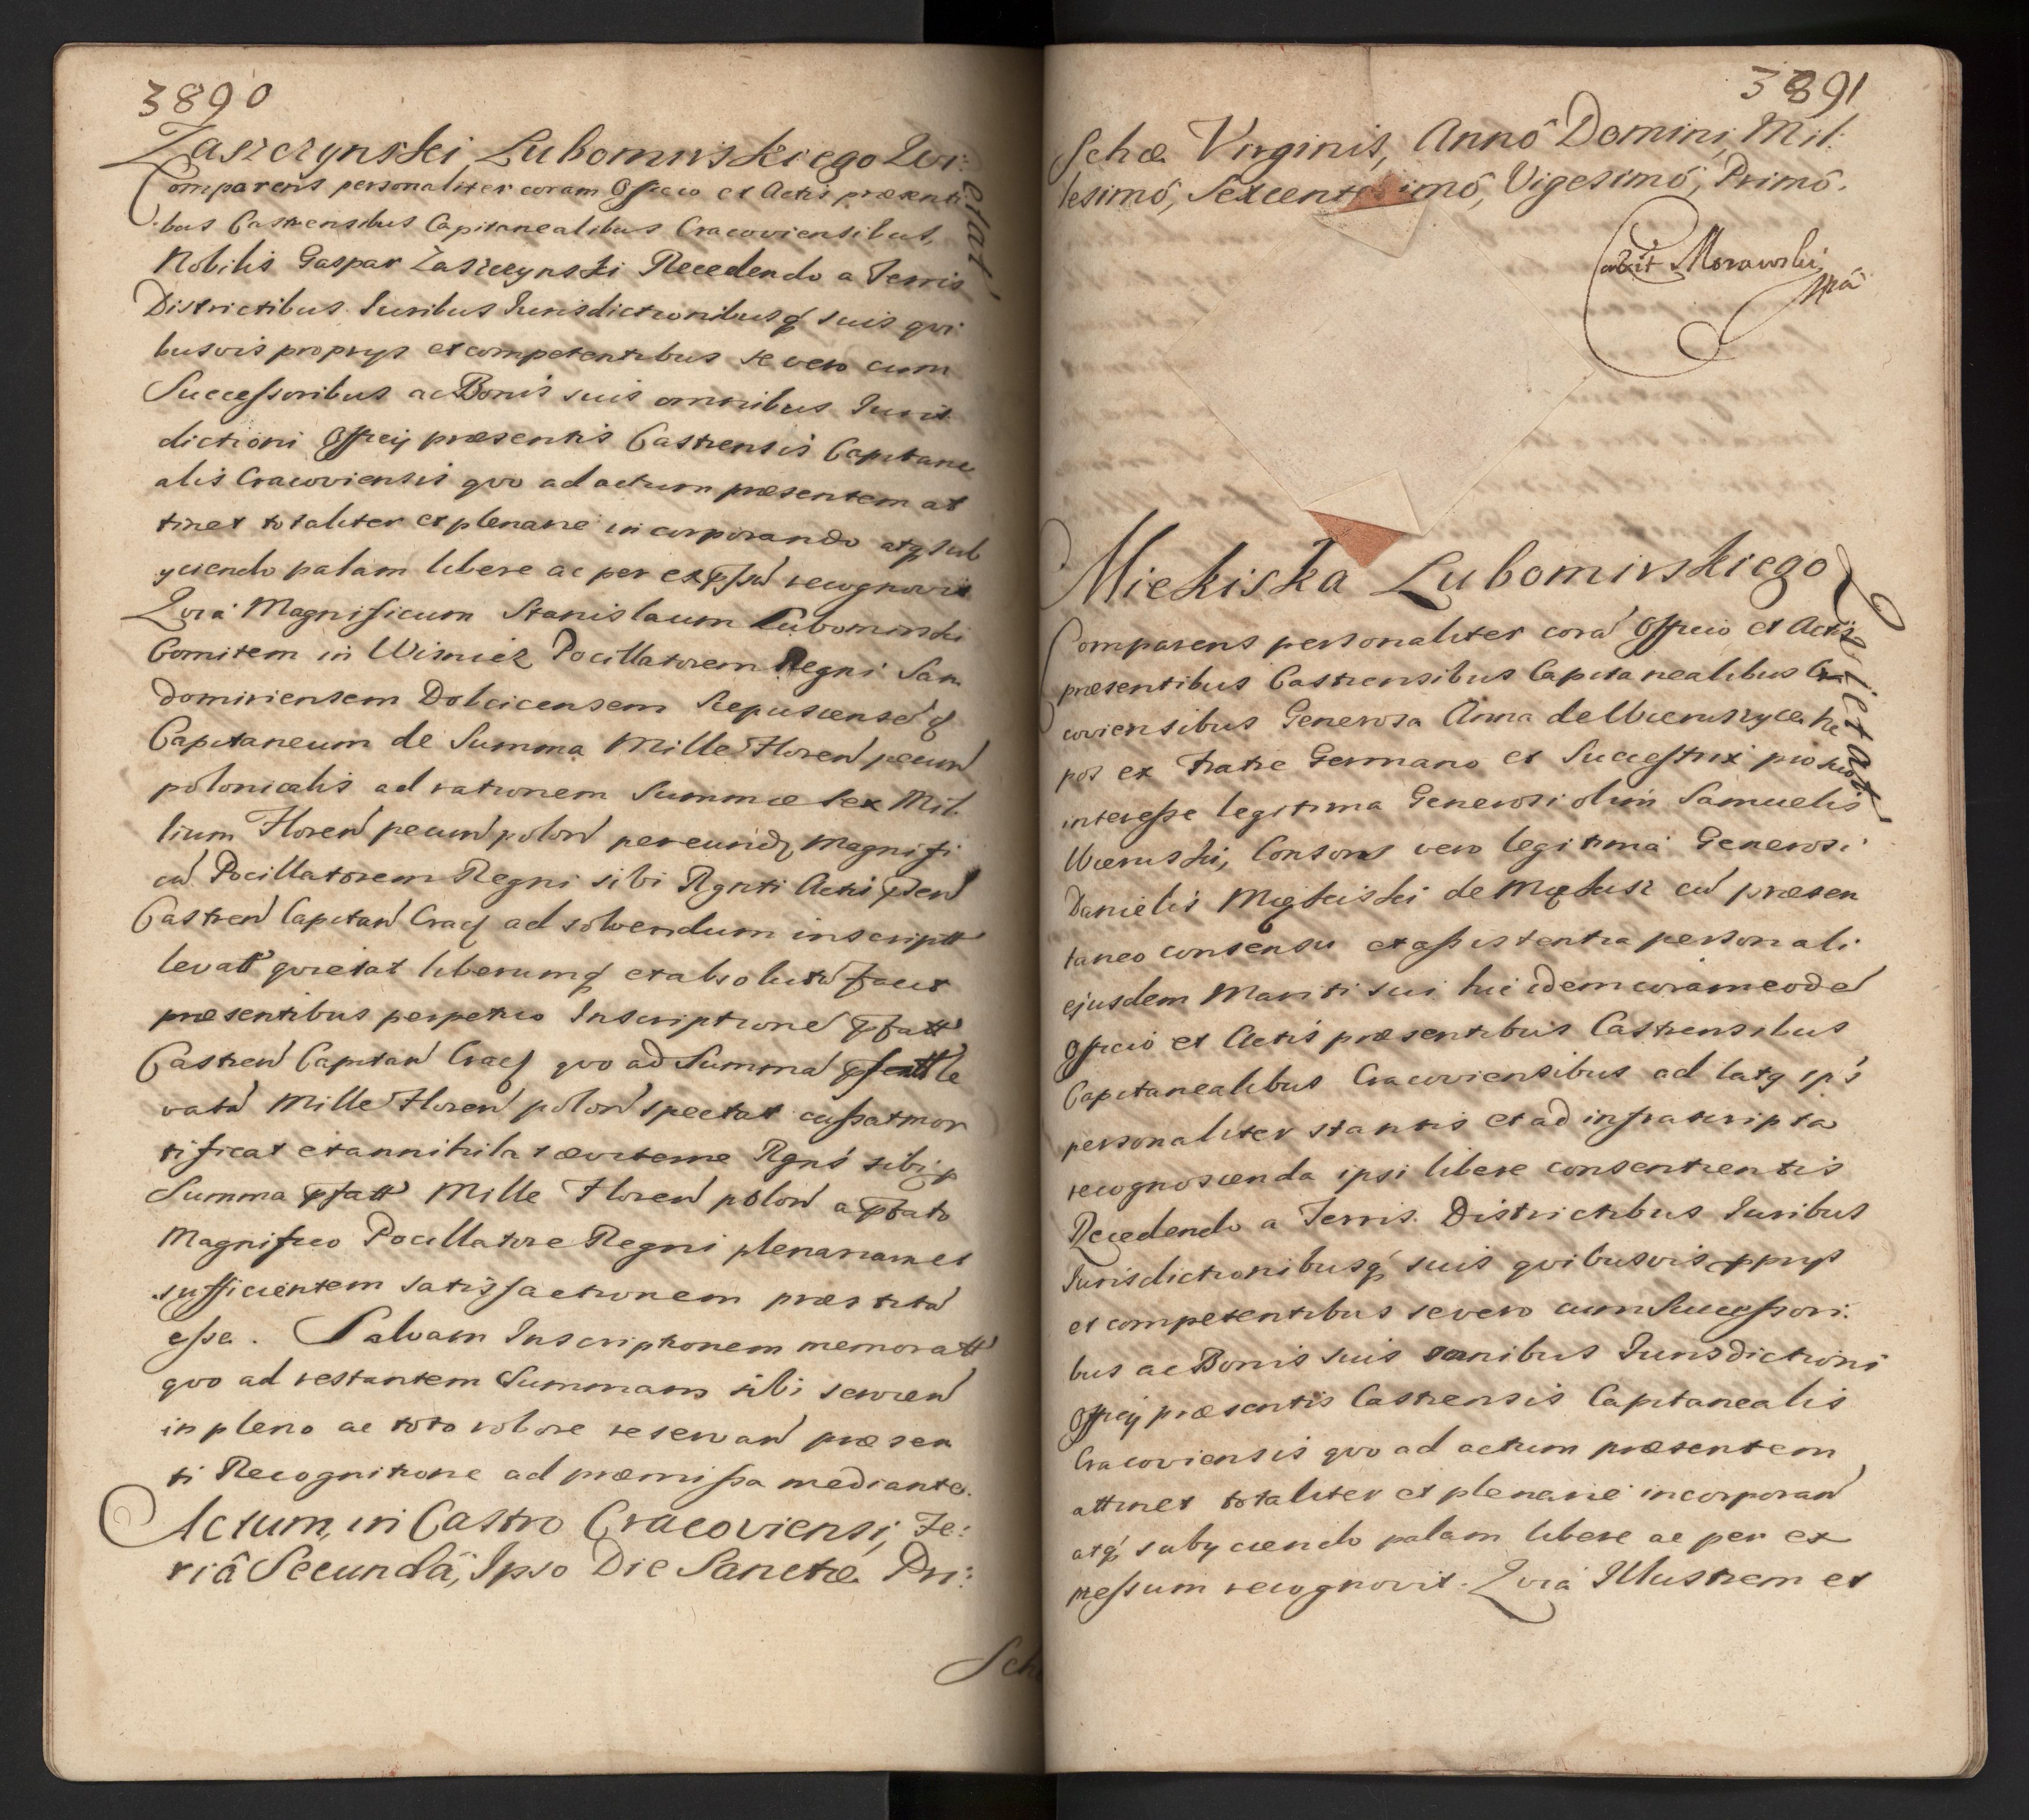 3890
Zaszczynski Lubomirskiego Qvi:
etat
Comparens personaliter coram Officio et Actis præsenti
bus Castrensibus Capitanealibus Cracoviensibus,
Nobilis Gaspar Zaszczynski Recedendo a Terris
Districtibus Iuribus Iurisdictionibusq suis qvi
busvis proprys et competentibus se vero cum
Successoribus ac Bonis suis omnibus Iuris
dictioni Officij præsentis Castrensis Capitane
alis Cracoviensis qvo ad actum præsentem at
tinet totaliter et plenarie incorporando atq sub
yciendo palam libere ac per expssu recognovit
Qvia Magnificum Stanislaum Lubomirski
Comitem in Wisnicz Pocillatorem Regni San
domiriensem Dobcicensem Scepusiense q
Capitaneum de Summa Mille Floren pecun
polonicalis ad rationem Summæ Sex Mil
lium Floren pecun polon per eundq Magnifi
cu Pocillatorem Regni sibi Rgnti Actis psen
Castren Capitan Crac ad solvendum inscriptt
levatt qvietat liberumq et absolutu facit
præsentibus perpetuo Inscriptione pfatt
Castren Capitan Crac qvo ad Summa psentt le
vata Mille Floren polon spectat cassat mor
tificat et annihilat æviterne Rgns sibi p
Summa pfatt Mille Floren polon a pfato
Magnifico Pocillatore Regni plenariam et
sufficientem satisfactionem præstita
esse. Salvam Inscriptionem memoratt
qvo ad restantem Summam sibi servien
in pleno ac toto robore reservan præsen
ti Recognitione ad præmissa mediante.
Actum, in Castro Cracoviensi, Fe:
riâ Secundâ, Ipso Die Sanctæ Pri:
Sch
3891
schæ Virginis, Annô Domini, Mil:
lesimô, Sexcent imô, Vigesimô, Primô.
Morawski
mpa
Miekiska Lubomirskiego
Qvietat
Comparens personaliter cora Officio et Actis
præsentibus Castrensibus Capitanealibus Cra
coviensibus Generosa Anna de Wieruszyce Ne
pos ex Fratre Germano et Successtrix pro suo
interesse legitima Generosi olim Samuelis
Wieruski, Consors vero legitima Generosi
Danielis Mękiski de Mękisz cu præsen
taneo consensu et assistentia personali
ejusdem Mariti sui hic idem coram eode
Officio et Actis præsentibus Castrensibus
Capitanealibus Cracoviensibus ad latq ips
personaliter stantis et ad infrascripta
recognoscenda ipsi libere consentientis
Recedendo a Terris Districtibus Iuribus
Iurisdictionibusq suis qvibusvis pprys
et competentibus se vero cum Successori:
bus ac Bonis suis omnibus Iurisdictioni
Officij præsentis Castrensis Capitanealis
Cracoviensis qvo ad actum præsentem
attinet totaliter et plenarie incorporan
atq subyciendo palam libere ac per ex
pressum recognovit. Qvia Illustrem et